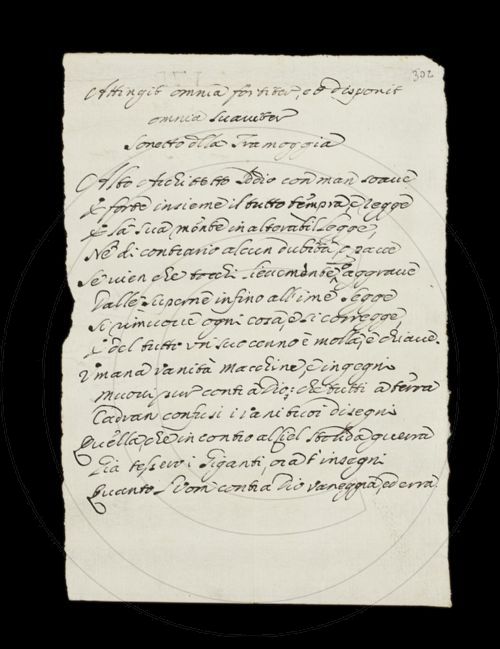 302
Attingit omnia fortiter, et disponit
omnia suaviter
Sonetto della Tramoggia
Alto Architetto Iddio con man soave
E forte insieme il tutto tempra, e regge
E la sua mente inalterabil legge,
Ne di contrario alcun dubita, o pave
Se vien che tocchi lievemente, o aggrave
Dalle superne infino all'ime segge
Si rimuove ogni cosa, e si corregge,
E del tutto un suo cenno è molla, e chiave.
Umana vanità macchine, e ingegni
Muovi pur contra Dio; che tutti a terra
Cadran confusi i vani tuoi disegni
Quella, che incontro al Ciel stolida guerra
Già fessero i Giganti, ora t'insegni
Quanto l'Uom contra Dio vaneggia, ed erra.